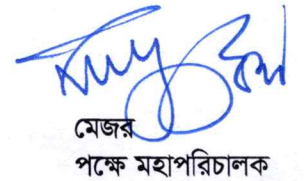 মেজর
পক্ষে মহাপরিচালক